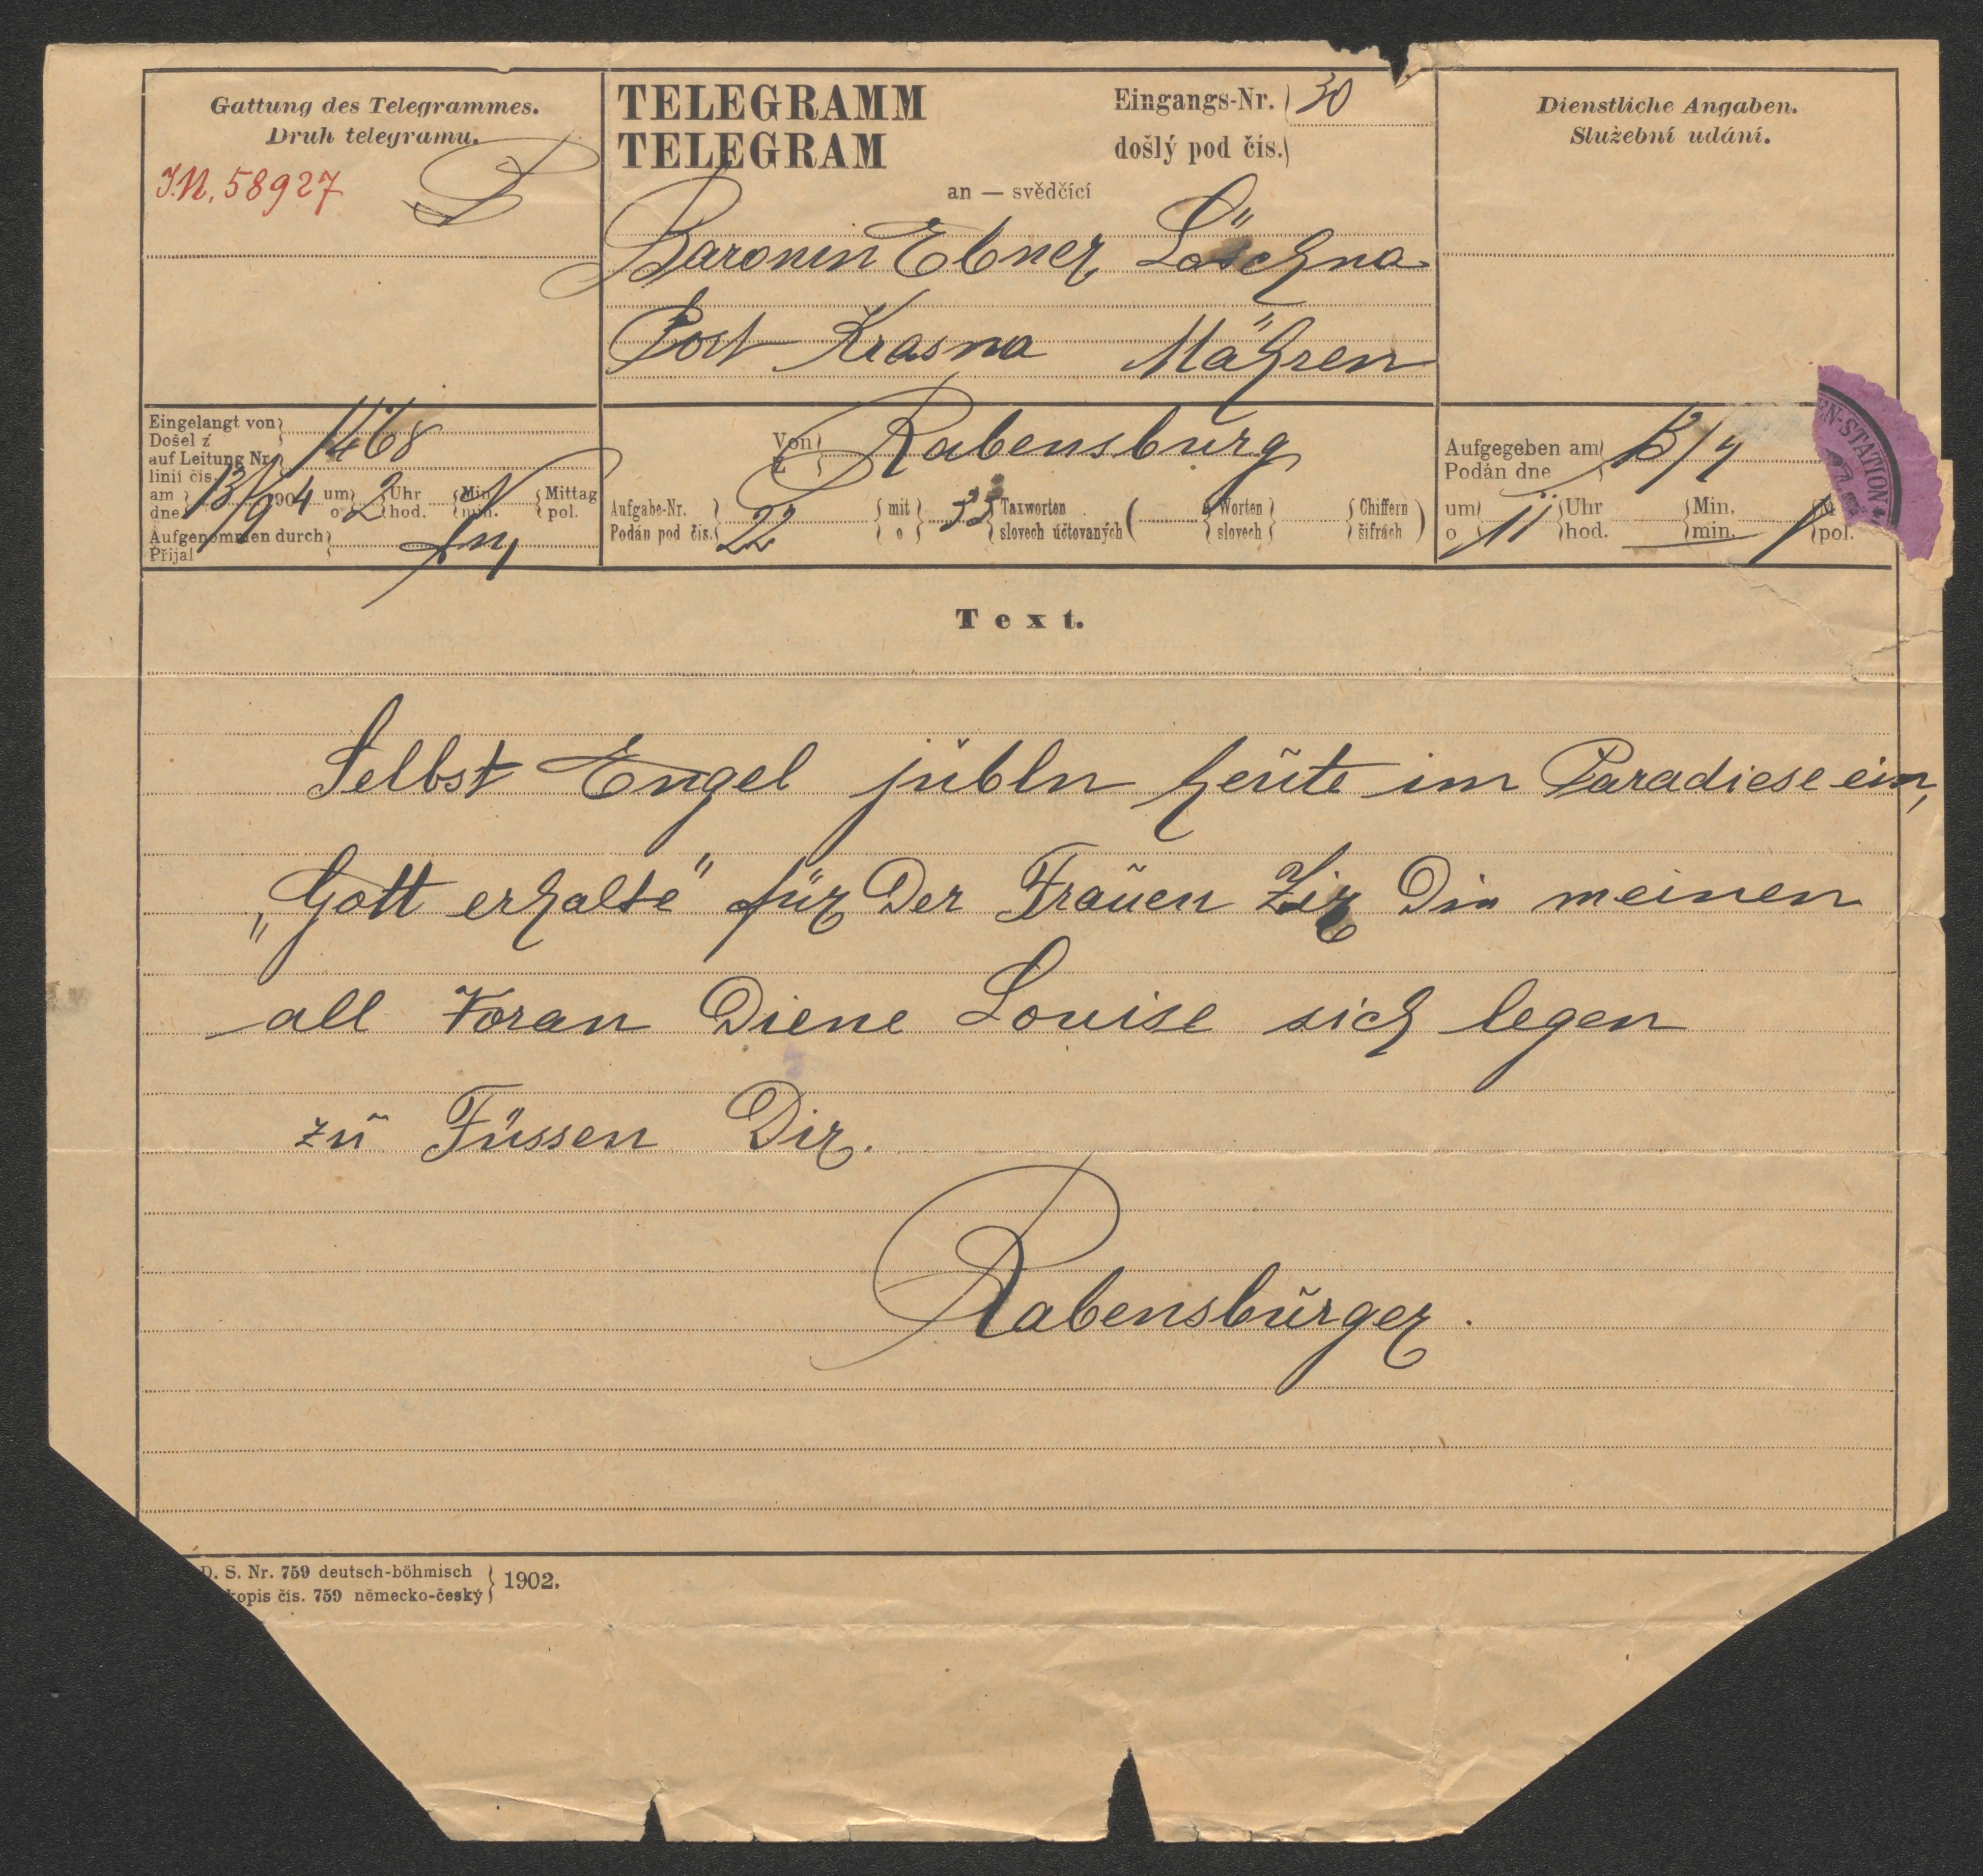 Gattung des Telegrammes.
Druh telegramu.
J.N. 58927
TELEGRAMM
TELEGRAM
Eingangs-Nr. 30
došlý pod čís.
an — svědčící
Baronin Ebner Löschna
Post Krasna Mähren
Dienstliche Angaben.
Služební udání.
Eingelangt von
Došel z
auf Leitung Nr. 1468
linii čís.
am 13/9 904 um 2 Uhr Min. Mittag
dne o hod. min. pol.
Aufgenommen durch
Přijal
Von Rabensburg
z
Aufgabe-Nr. 22 mit 33 Taxworten ( Worten Chiffern )
Podán pod čís. o slovech účtovaných slovech šifrách
Aufgegeben am 13/9
Podán dne
um 11 Uhr Min.
o hod. min. pol.
EN-STATION
Text.
Selbst Engel jubln heute im Paradiese ein,
„Gott erhalte" für Der Frauen Zir Din meinen
all Voran Diene Louise sich legen
zu Füssen Dir.
Rabensburger.
D. S. Nr. 759 deutsch-böhmisch
kopis čís. 759 německo-český 1902.